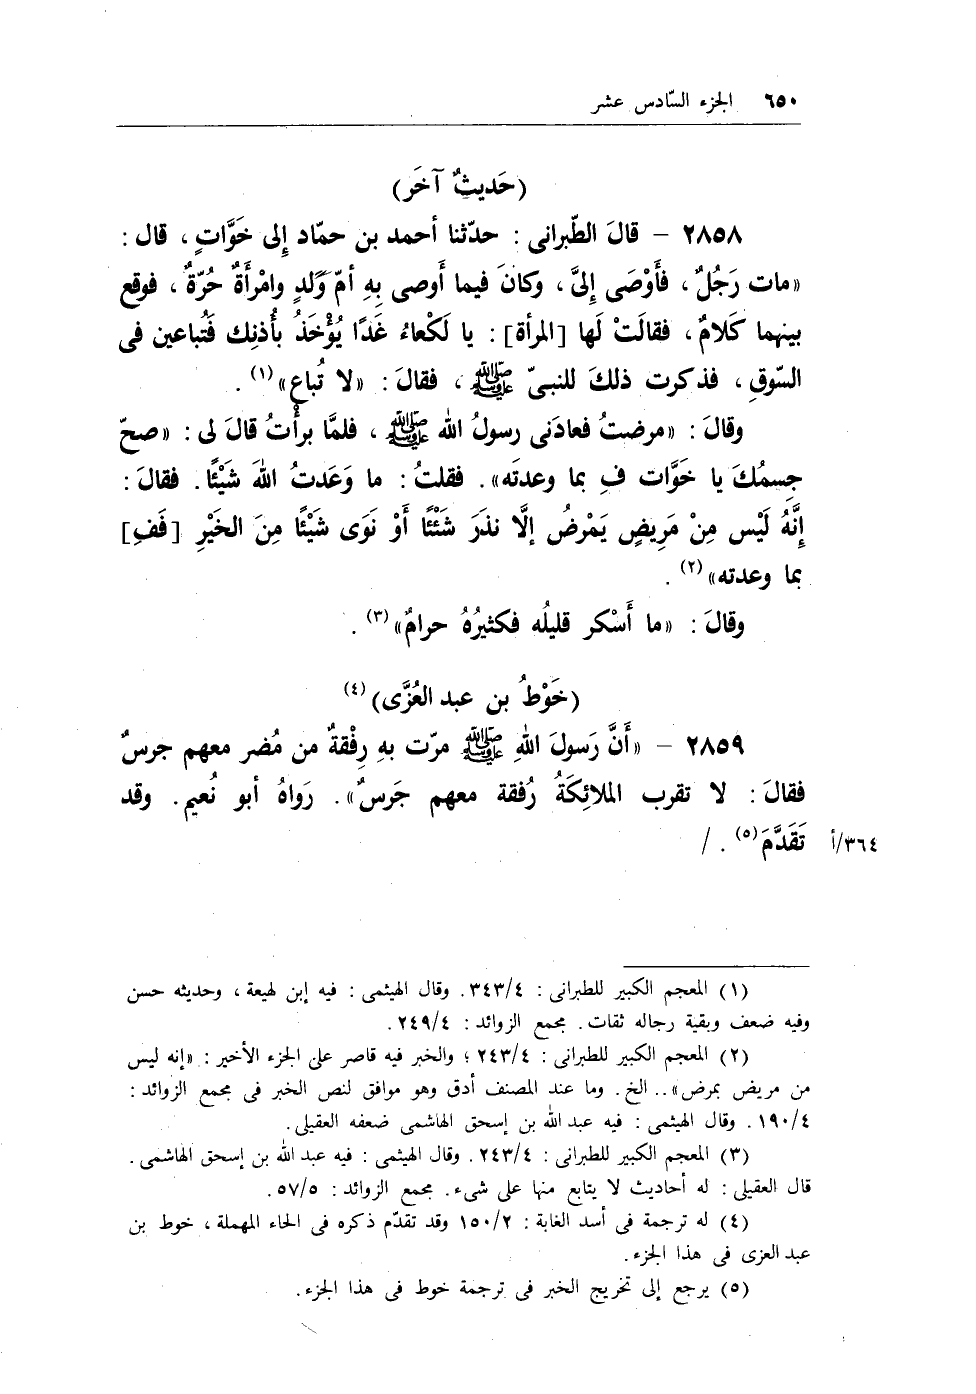 ٦٥٠ الجزء السّادس عشر
(حَديثٌ آخَر)
٢٨٥٨ – قالَ الطّبرانى : حدّثنا أحمد بن حمّاد إلى خَوَّاتٍ ، قال :
«مات رَجُلٌ ، فَأَوْصَى إلىَّ ، وكانَ فيما أَوصى بِهِ أمّ وَلَدٍ وامْرأَةٌ حُرّةٌ ، فوقع
بينهما كَلامٌ ، فقالَتْ لَها [المرأة] : يا لَكْعاءُ غَدًا يُؤْخَذُ بأُذنِك فَتُباعين فى
السّوقِ ، فذكرت ذلكَ للنبىّ ﷺ ، فقالَ : «لا تُباع»(١) .
وقالَ : «مرضتُ فعادَنى رسولُ الله ﷺ ، فلمَّا برأتُ قالَ لى : «صحّ
جِسمُكَ يا خَوَّات فِ بما وعدتَه» . فقلتُ : ما وَعَدتُ اللهَ شَيْئًا . فقالَ :
إنَّهُ لَيْس مِنْ مَرِيضٍ يَمْرضُ إلَّا نذَرَ شَئْئًا أَوْ نَوَى شَيْئًا مِنَ الخَيْرِ [فَفِ]
بما وعدته»(٢) .
وقالَ : «ما أَسْكر قليلُه فكثيرُهُ حرامٌ»(٣) .
(خَوْطُ بن عبد العُزَّى)(٤)
٢٨٥٩ – «أَنَّ رَسولَ اللهِ ﷺ مرّت بهِ رِفْقةٌ من مُضر معهم جرسٌ
فقالَ : لا تقرب الملائِكَةُ رُفقة معهم جَرسٌ» . رَواهُ أبو نُعيم . وقد
تَقَدَّمَ(٥) . / ٣٦٤/أ
(١) المعجم الكبير للطبرانى : ٣٤٣/٤ . وقال الهيثمى : فيه إبن لهيعة ، وحديثه حسن
وفيه ضعف وبقية رجاله ثقات . مجمع الزوائد : ٢٤٩/٤ .
(٢) المعجم الكبير للطبرانى : ٢٤٣/٤ ؛ والخبر فيه قاصر على الجزء الأخير : «إنه ليس
من مريض يمرض» .. الخ . وما عند المصنف أدق وهو موافق لنص الخبر فى مجمع الزوائد :
١٩٠/٤ . وقال الهيثمى : فيه عبد الله بن إسحق الهاشمى ضعفه العقيلى .
(٣) المعجم الكبير للطبرانى : ٢٤٣/٤ . وقال الهيثمى : فيه عبد الله بن إسحق الهاشمى .
قال العقيلى : له أحاديث لا يتابع منها على شىء . مجمع الزوائد : ٥٧/٥ .
(٤) له ترجمة فى أسد الغابة : ١٥٠/٢ وقد تقدّم ذكره فى الحاء المهملة ، خوط بن
عبد العزى فى هذا الجزء .
(٥) يرجع إلى تخريج الخبر فى ترجمة خوط فى هذا الجزء .